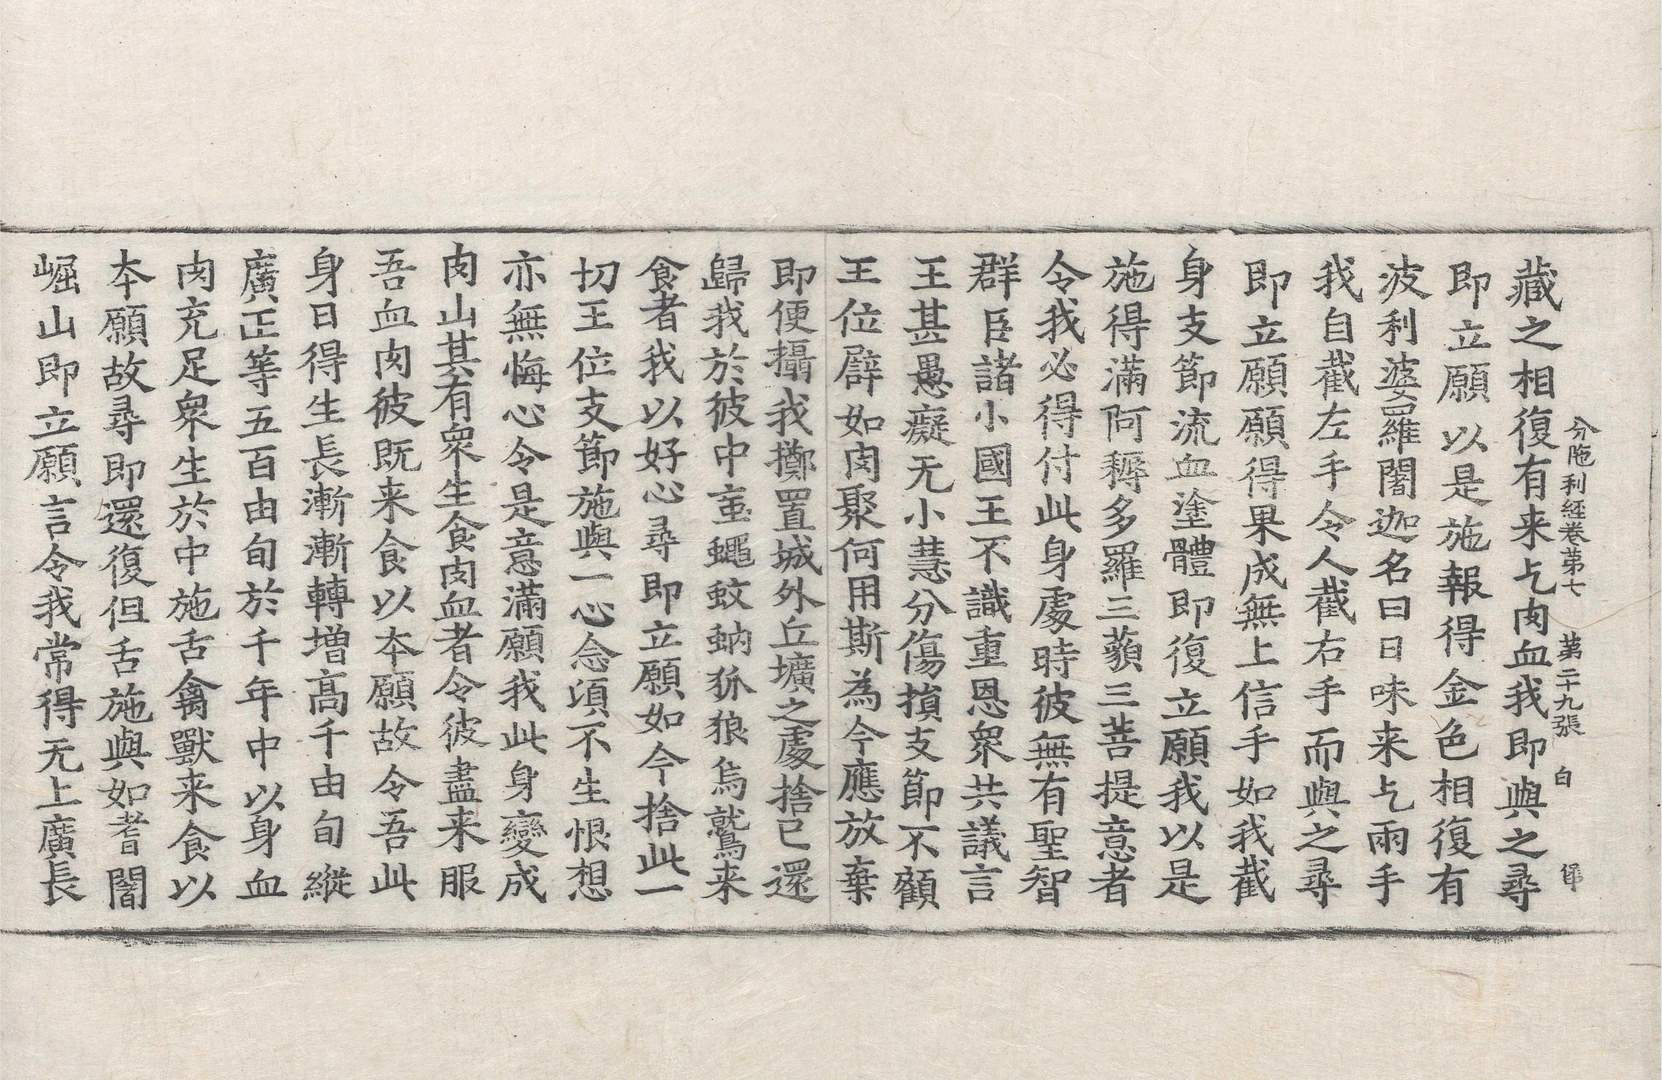 分陁利經卷第七 第二十九張 白
藏之相復有来乞肉血我即與之尋
即立願以是施報得金色相復有
波利婆羅闍迦名曰日味来乞兩手
我自截左手令人截右手而與之尋
即立願願得果成無上信手如我截
身支節流血塗體即復立願我以是
施得滿阿耨多羅三藐三菩提意者
令我必得付此身處時彼無有聖智
群臣諸小國王不識重恩衆共議言
王甚愚癡无小慧分傷損支節不顧
王位譬如肉聚何用斯為今應放棄
即便攝我擲置城外丘壙之處捨已還
歸我於彼中䖟蠅蚊蚋狖狼烏鷲来
食者我以好心尋即立願如今捨此一
切王位支節施與一心念湏不生恨想
亦無悔心令是意滿願我此身變成
肉山其有衆生食肉血者令彼盡来服
吾血肉彼既来食以本願故令吾此
身日得生長漸漸轉增高千由旬縱
廣正等五百由旬於千年中以身血
肉充足衆生於中施舌禽獸来食以
本願故尋即還復但舌施與如耆闍
崛山即立願言令我常得无上廣長